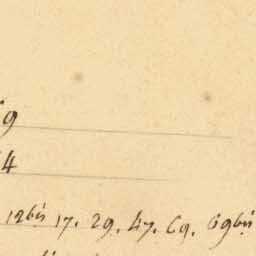 9
4
12bis 17. 29. 47. 69. 69bis